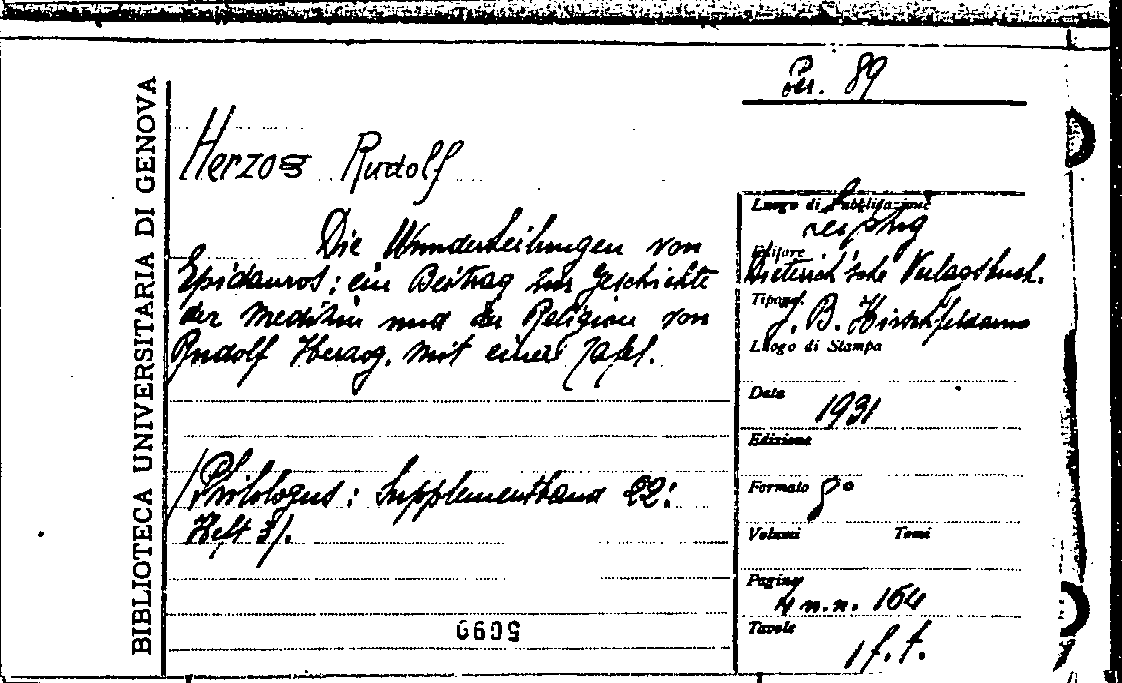 BIBLIOTECA UNIVERSITARIA DI GENOVA
Per. 89
Herzog Rudolf
Die Wunderheilungen von
Epidauros: ein Beitrag zur Geschichte
der Medizin und der Religion von
Rudolf Herzog. Mit einer Tafel.
/Philologus: Supplementband 22:
Heft 3/.
5099
Luogo di Pubblicazione
Leipzig
Editore
Dieterich'sche Verlagsbuch.
Tipogr.
J. B. Hirschfeldanns
Luogo di Stampa
Data
1931
Edizione
Formato 8°
Volumi Tomi
Pagine
4 n.n. 164
Tavole
1 f.t.